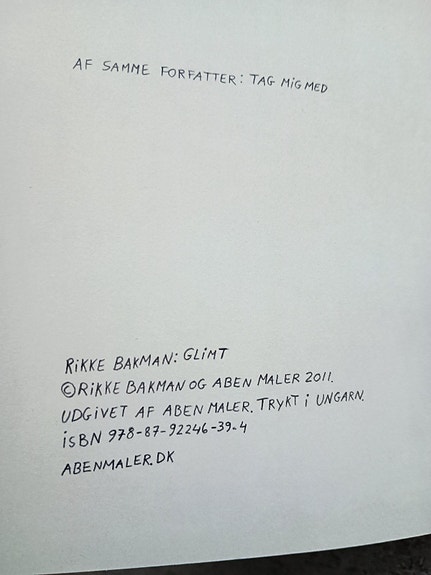 AF SAMME FORFATTER: TAG MIG MED
RIKKE BAKMAN: GLIMT
©RIKKE BAKMAN OG ABEN MALER 2011.
UDGIVET AF ABEN MALER. TRYKT I UNGARN.
ISBN 978-87-92246-39-4
ABENMALER.DK